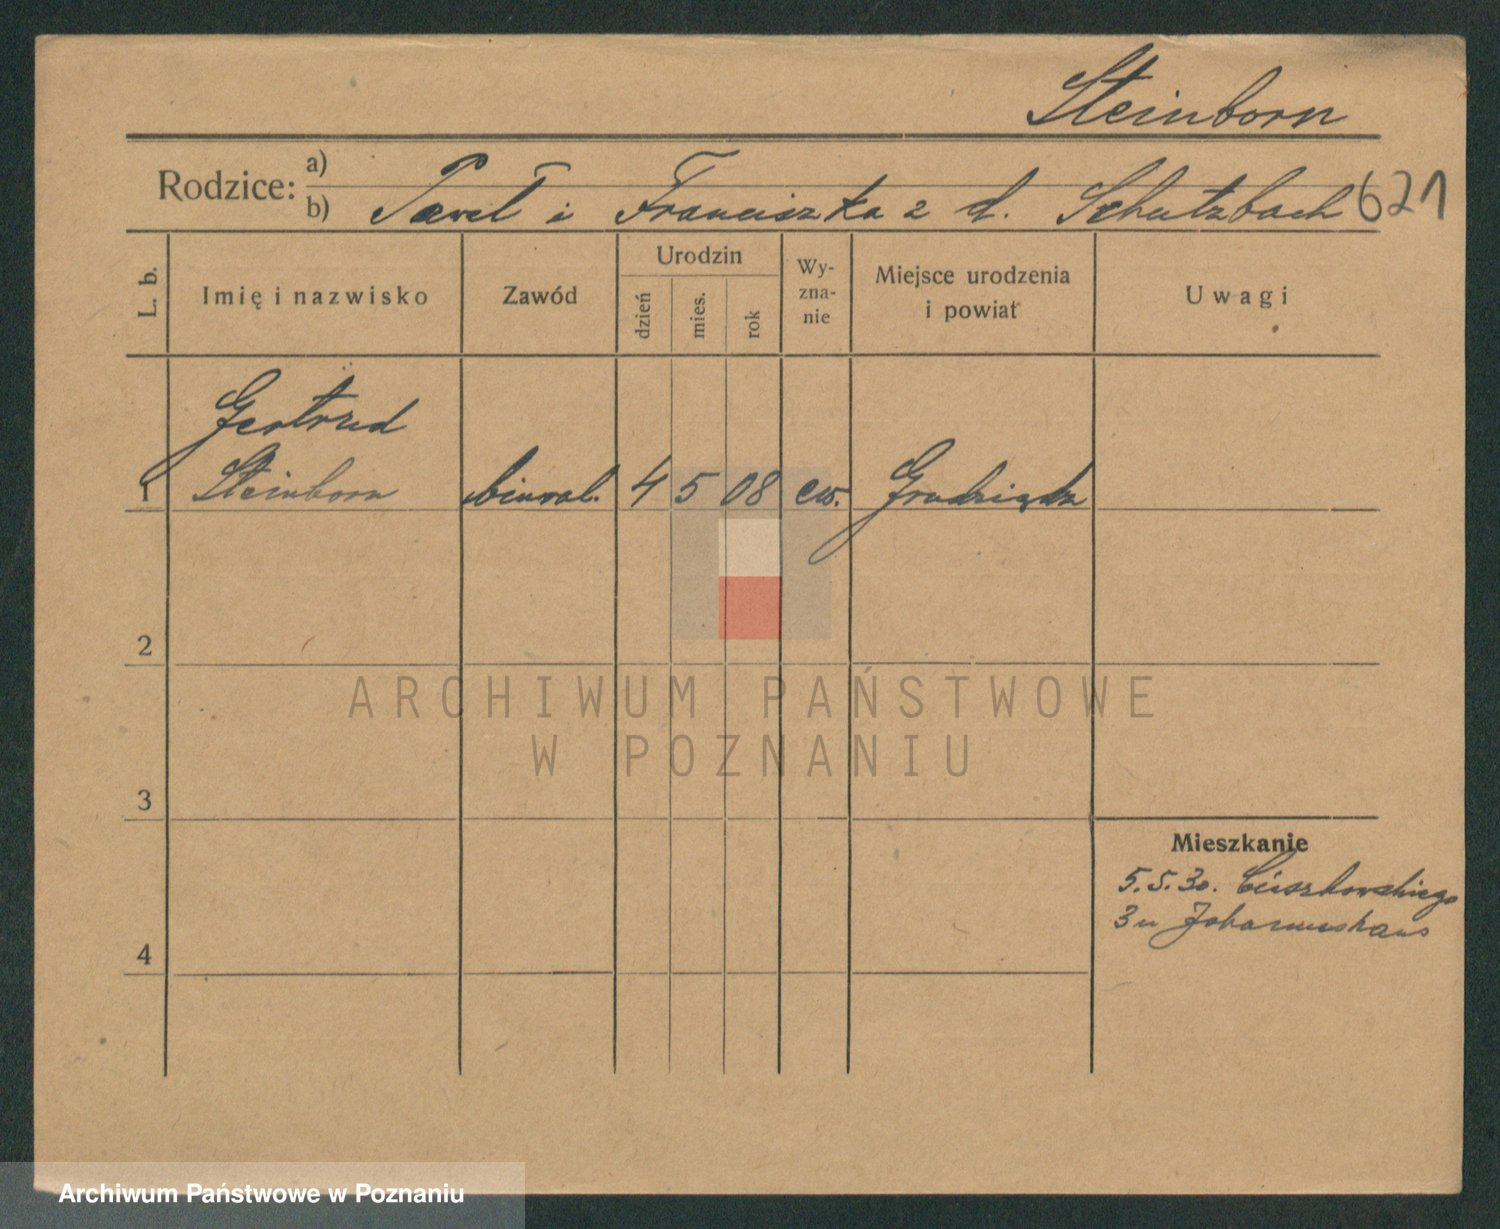 Steinborn
Rodzice: a)
b) Paweł i Franciszka z d. Schutzbach 621
L. b. Imię i nazwisko Zawód Urodzin dzień mies. rok Wyzna-nie Miejsce urodzenia i powiat Uwagi
Gertrud
1 Steinborn biural. 4 5 08 ew. Grudziądz
2
ARCHIWUM PAŃSTWOWE
W POZNANIU
3
Mieszkanie
5.5.30. Cieszkowskiego
3 u Johanneshaus
4
Archiwum Państwowe w Poznaniu